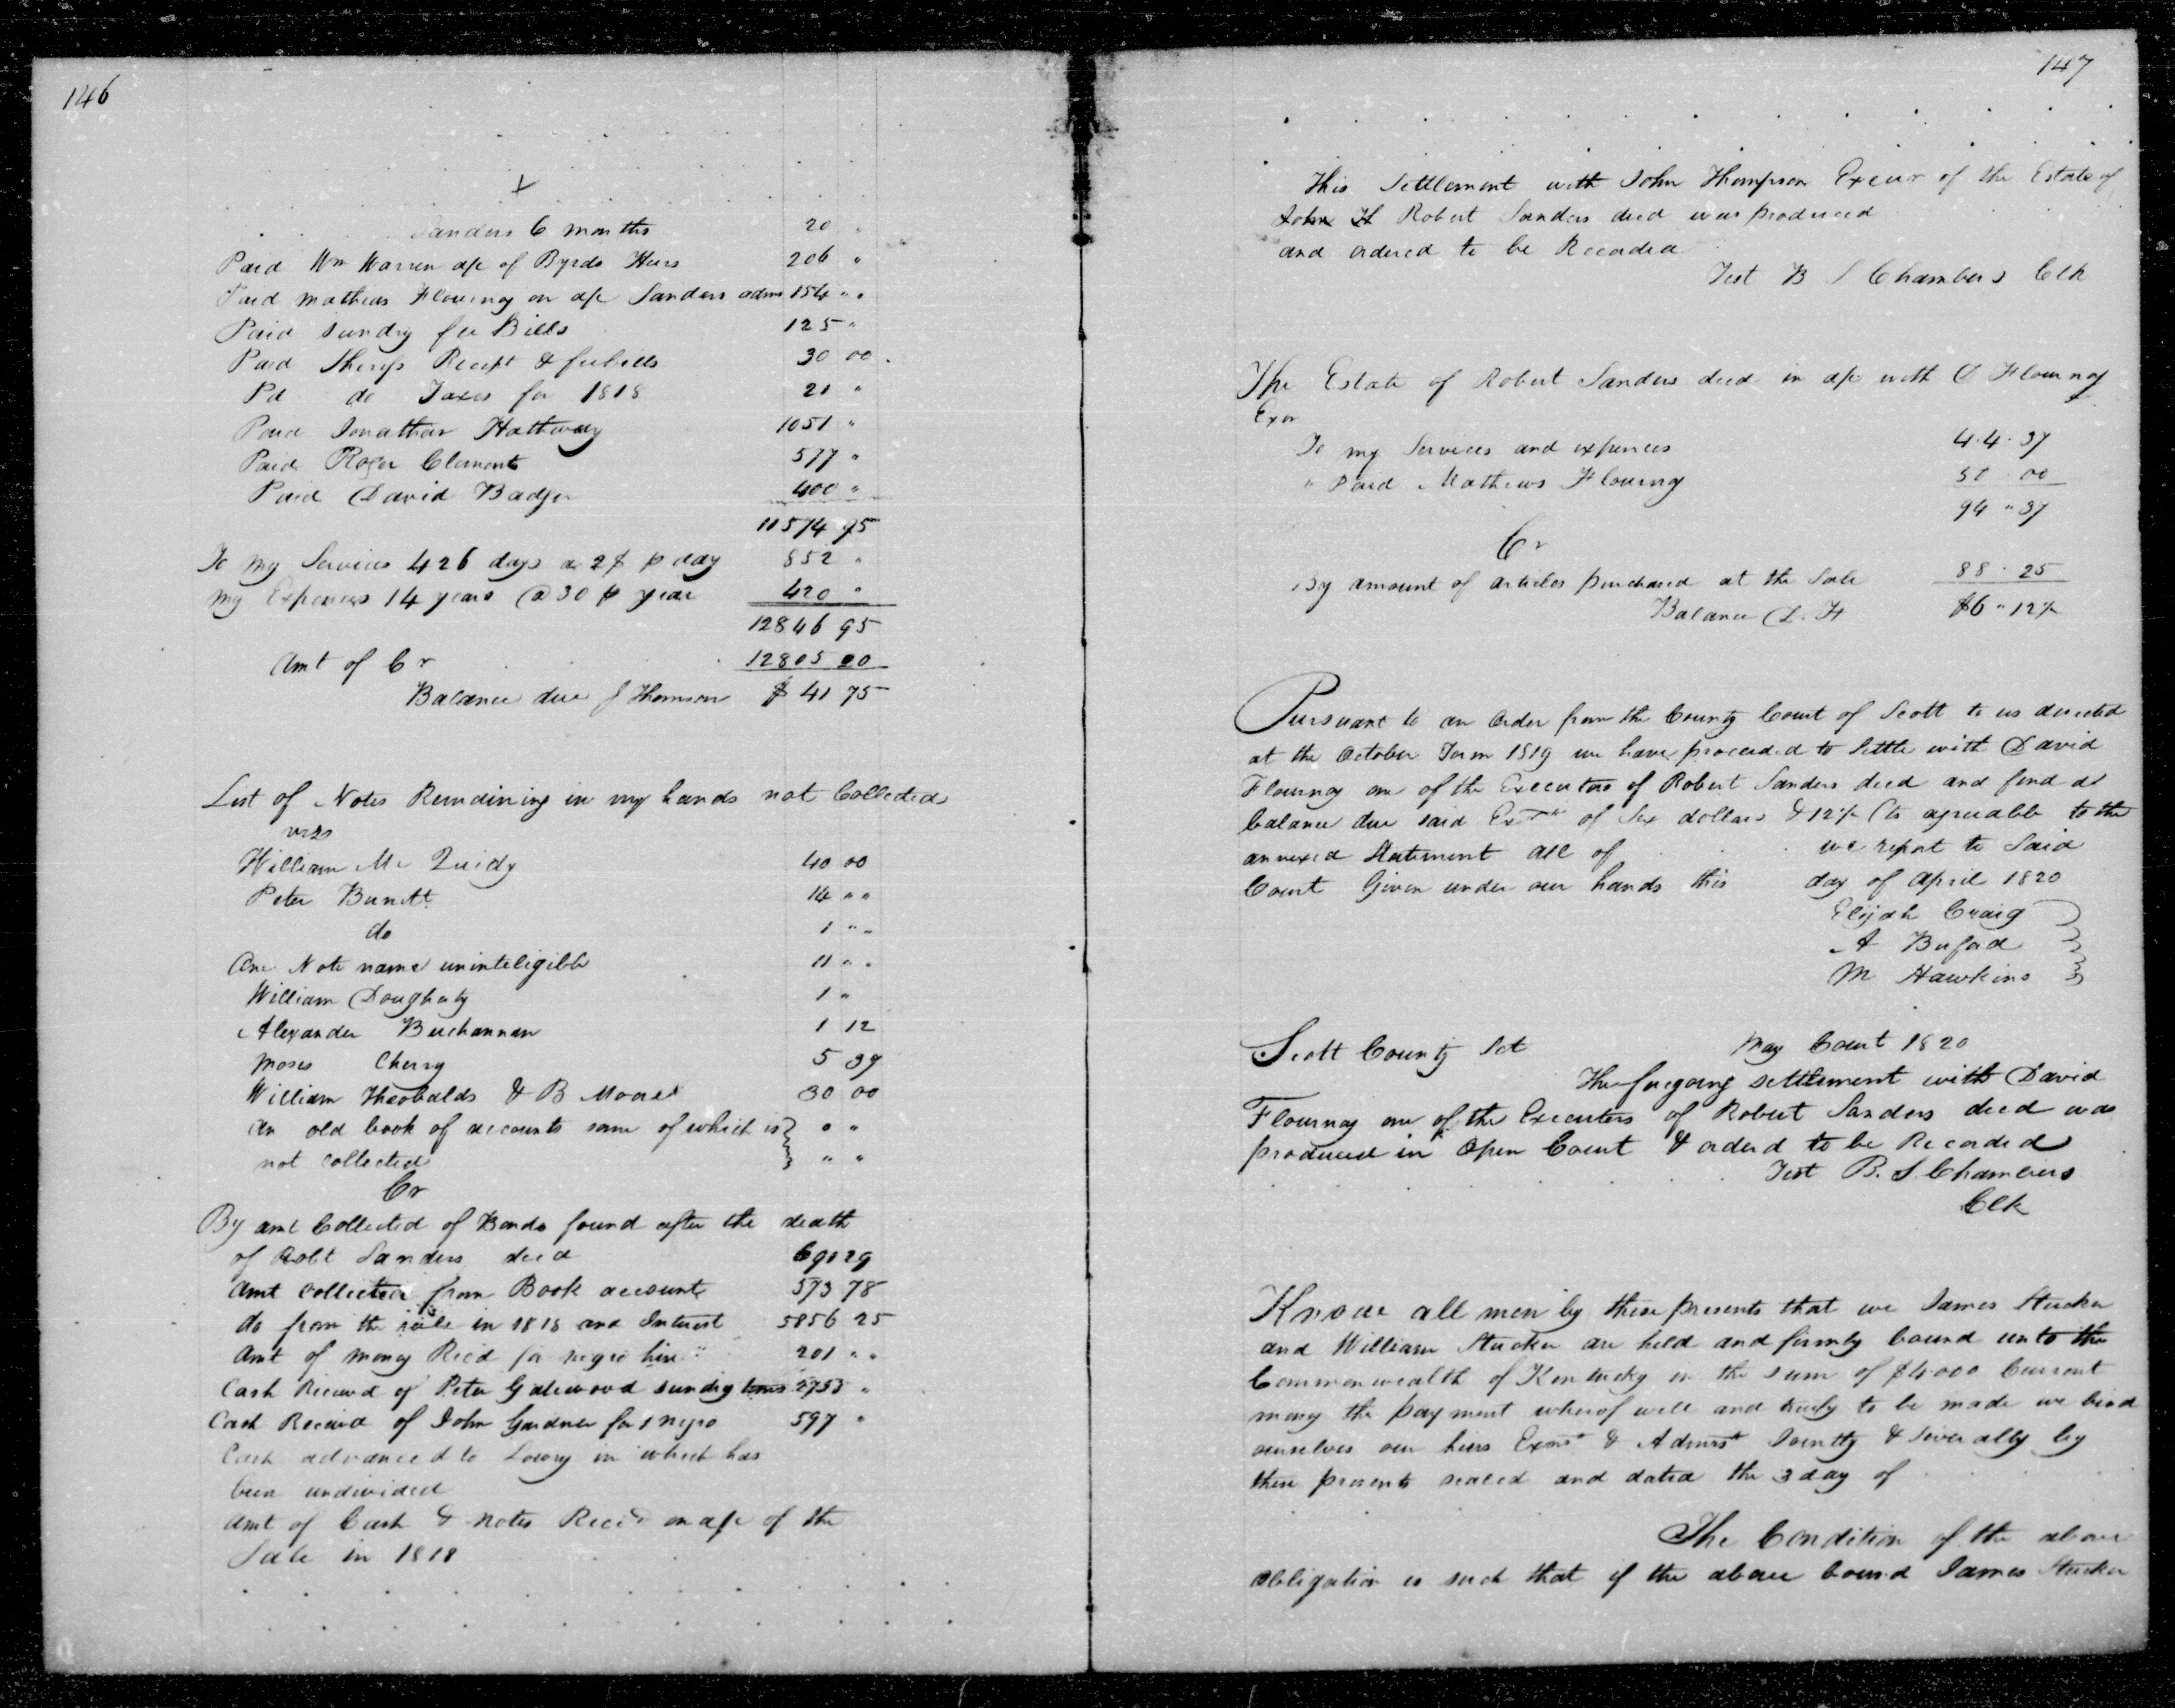 146
+
Sanders 6 months 20 "
Paid Wm Warren a/c of Byrds Heirs 206 "
Paid mathews Flournoy on a/c Sanders adms 154 " "
Paid sundry fee Bills 125 "
Paid Sherifs Receipt & feebills 30 00
Pd do Taxes for 1818 21 "
Paid Jonathan Hathway 1051 "
Paid Roger Clements 577 "
Paid David Badger 400 "
11574 95
To my Services 426 days a 2$ p day 852 "
my Expences 14 years @ 30 p year 420 "
12846 95
Amt of Cr 12805 20
Balance due J Thomson $ 41 75
List of Notes Remaining in my hands not Collected
vizs
William Mc Quidy 40 00
Peter Burett 14 " "
do 1 " "
One Note name uninteligible 11 " "
William Dougherty 1 "
Alexander Buchannan 1 12
Moses Cherry 5 39
William Theobalds & B Moore 30 00
An old book of accounts some of which is } 0 "
not collected } " "
Cr
By amt Collected of Bonds found after the death
of Robt Sanders decd 690 29
Amt collected from Book accounts 573 78
do from the sale in 1818 and Interest 5856 25
Amt of money Recd for negro hire " 201 " "
Cash Received of Peter Gatewood sundry times 2753 "
Cash Received of John Gardner for 1 negro 597 "
Cash advanced to Lowry in which has
been undivided
Amt of Cash & notes Recd on a/c of the
Sale in 1818
147
This Settlement with John Thompson Execur of the Estate of
John H Robert Sanders decd was produced
and ordered to be Recorded
Test B S Chambers Clk
The Estate of Robert Sanders decd in a/c with D Flournoy
Exor
To my Services and expences 44.37
" Paid Mathews Flournoy 50.00
94 " 37
Cr
By amount of articles purchased at the Sale 88.25
Balance D. F $6 " 12½
Pursuant to an Order from the County Court of Scott to us directed
at the October Term 1819 we have proceeded to Settle with David
Flournoy one of the Executors of Robert Sanders decd and find a
balance due said Exor of Six dollars & 12½ Cts agreeable to the
annexed Statement all of we report to Said
Court Given under our hands this day of April 1820
Elijah Craig }
A Buford }
M Hawkins }
Scott County Sct May Court 1820
The foregoing settlement with David
Flournoy one of the Executors of Robert Sanders decd was
produced in Open Court & orderd to be Recorded
Test B. S. Chambers
Clk
Know all men by these presents that we James Stucker
and William Stucker are held and firmly bound unto the
Commonwealth of Kentucky in the sum of $4000 Current
money the payment wherof well and truly to be made we bind
ourselves our heirs Exors & Admrs Jointly & Severally by
these presents sealed and dated the 3 day of
The Condition of the above
obligation is such that if the above bound James Stucker